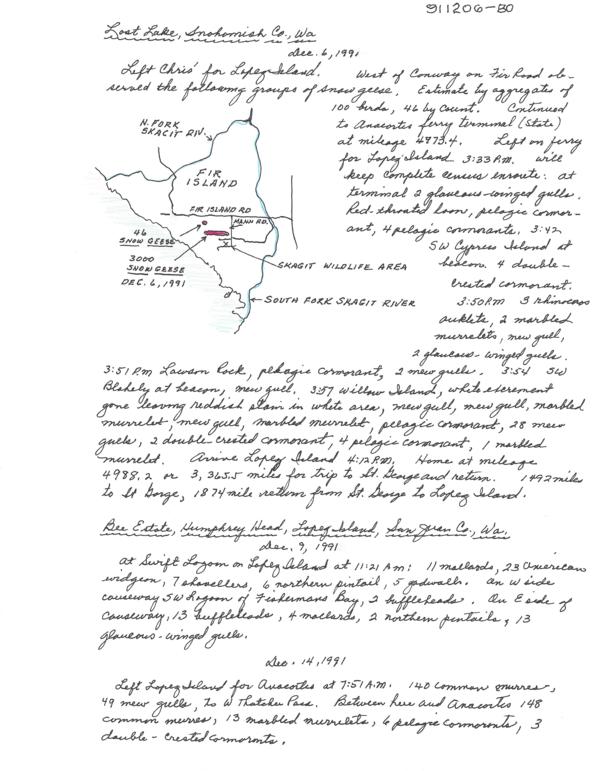 911206-80
Lost Lake, Snohomish Co., Wa
Dec. 6, 1991
Left Chris' for Lopez Island. West of Conway on Fir Road ob-
served the following groups of snow geese. Estimate by aggregates of
100 birds, 46 by count. Continued
to Anacortes ferry terminal (State)
at mileage 4973.4. Left on ferry
for Lopez Island 3:33 P.M. will
keep complete census enroute: at
terminal 2 glaucous-winged gulls.
Red-throated loon, pelagic cormor-
ant, 4 pelagic cormorants. 3:42
SW Cypress Island at
beacon. 4 double-
crested cormorant.
3:50 PM 3 rhinoceros
auklets, 2 marbled
murrelets, mew gull,
2 glaucous-winged gulls.
N. FORK
SKAGIT RIV.
FIR
ISLAND
FIR ISLAND RD
MANN RD.
46
SNOW GEESE
3000
SNOW GEESE
DEC. 6, 1991
SKAGIT WILDLIFE AREA
SOUTH FORK SKAGIT RIVER
3:51 P.M Lawson Rock, pelagic cormorant, 2 mew gulls. 3:54 SW
Blakely at beacon, mew gull. 3:57 Willow Island, white excrement
gone leaving reddish stain in white area, mew gull, mew gull, marbled
murrelet, mew gull, marbled murrelet, pelagic cormorant, 28 mew
gulls, 2 double crested cormorant, 4 pelagic cormorant, 1 marbled
murrelet. Arrive Lopez Island 4:12 P.M. Home at mileage
4988.2 or 3,365.5 miles for trip to St. George and return. 1492 miles
to St George, 1874 mile return from St. George to Lopez Island.
Bee Estate, Humphrey Head, Lopez Island, San Juan Co., Wa.
Dec. 9, 1991
At Swift Lagoon on Lopez Island at 11:21 A.M: 11 mallards, 23 American
widgeon, 7 shovellers, 6 northern pintail, 5 gadwalls. On W side
causeway SW lagoon of Fishermans Bay, 2 buffleheads. On E side of
causeway, 13 buffleheads, 4 mallards, 2 northern pintails, 13
glaucous-winged gulls.
Dec. 14, 1991
Left Lopez Island for Anacortes at 7:51 A.M. 140 common murres,
49 mew gulls, to W Thatcher Pass. Between here and Anacortes 148
common murres, 13 marbled murrelets, 6 pelagic cormorants, 3
double-crested cormorants.